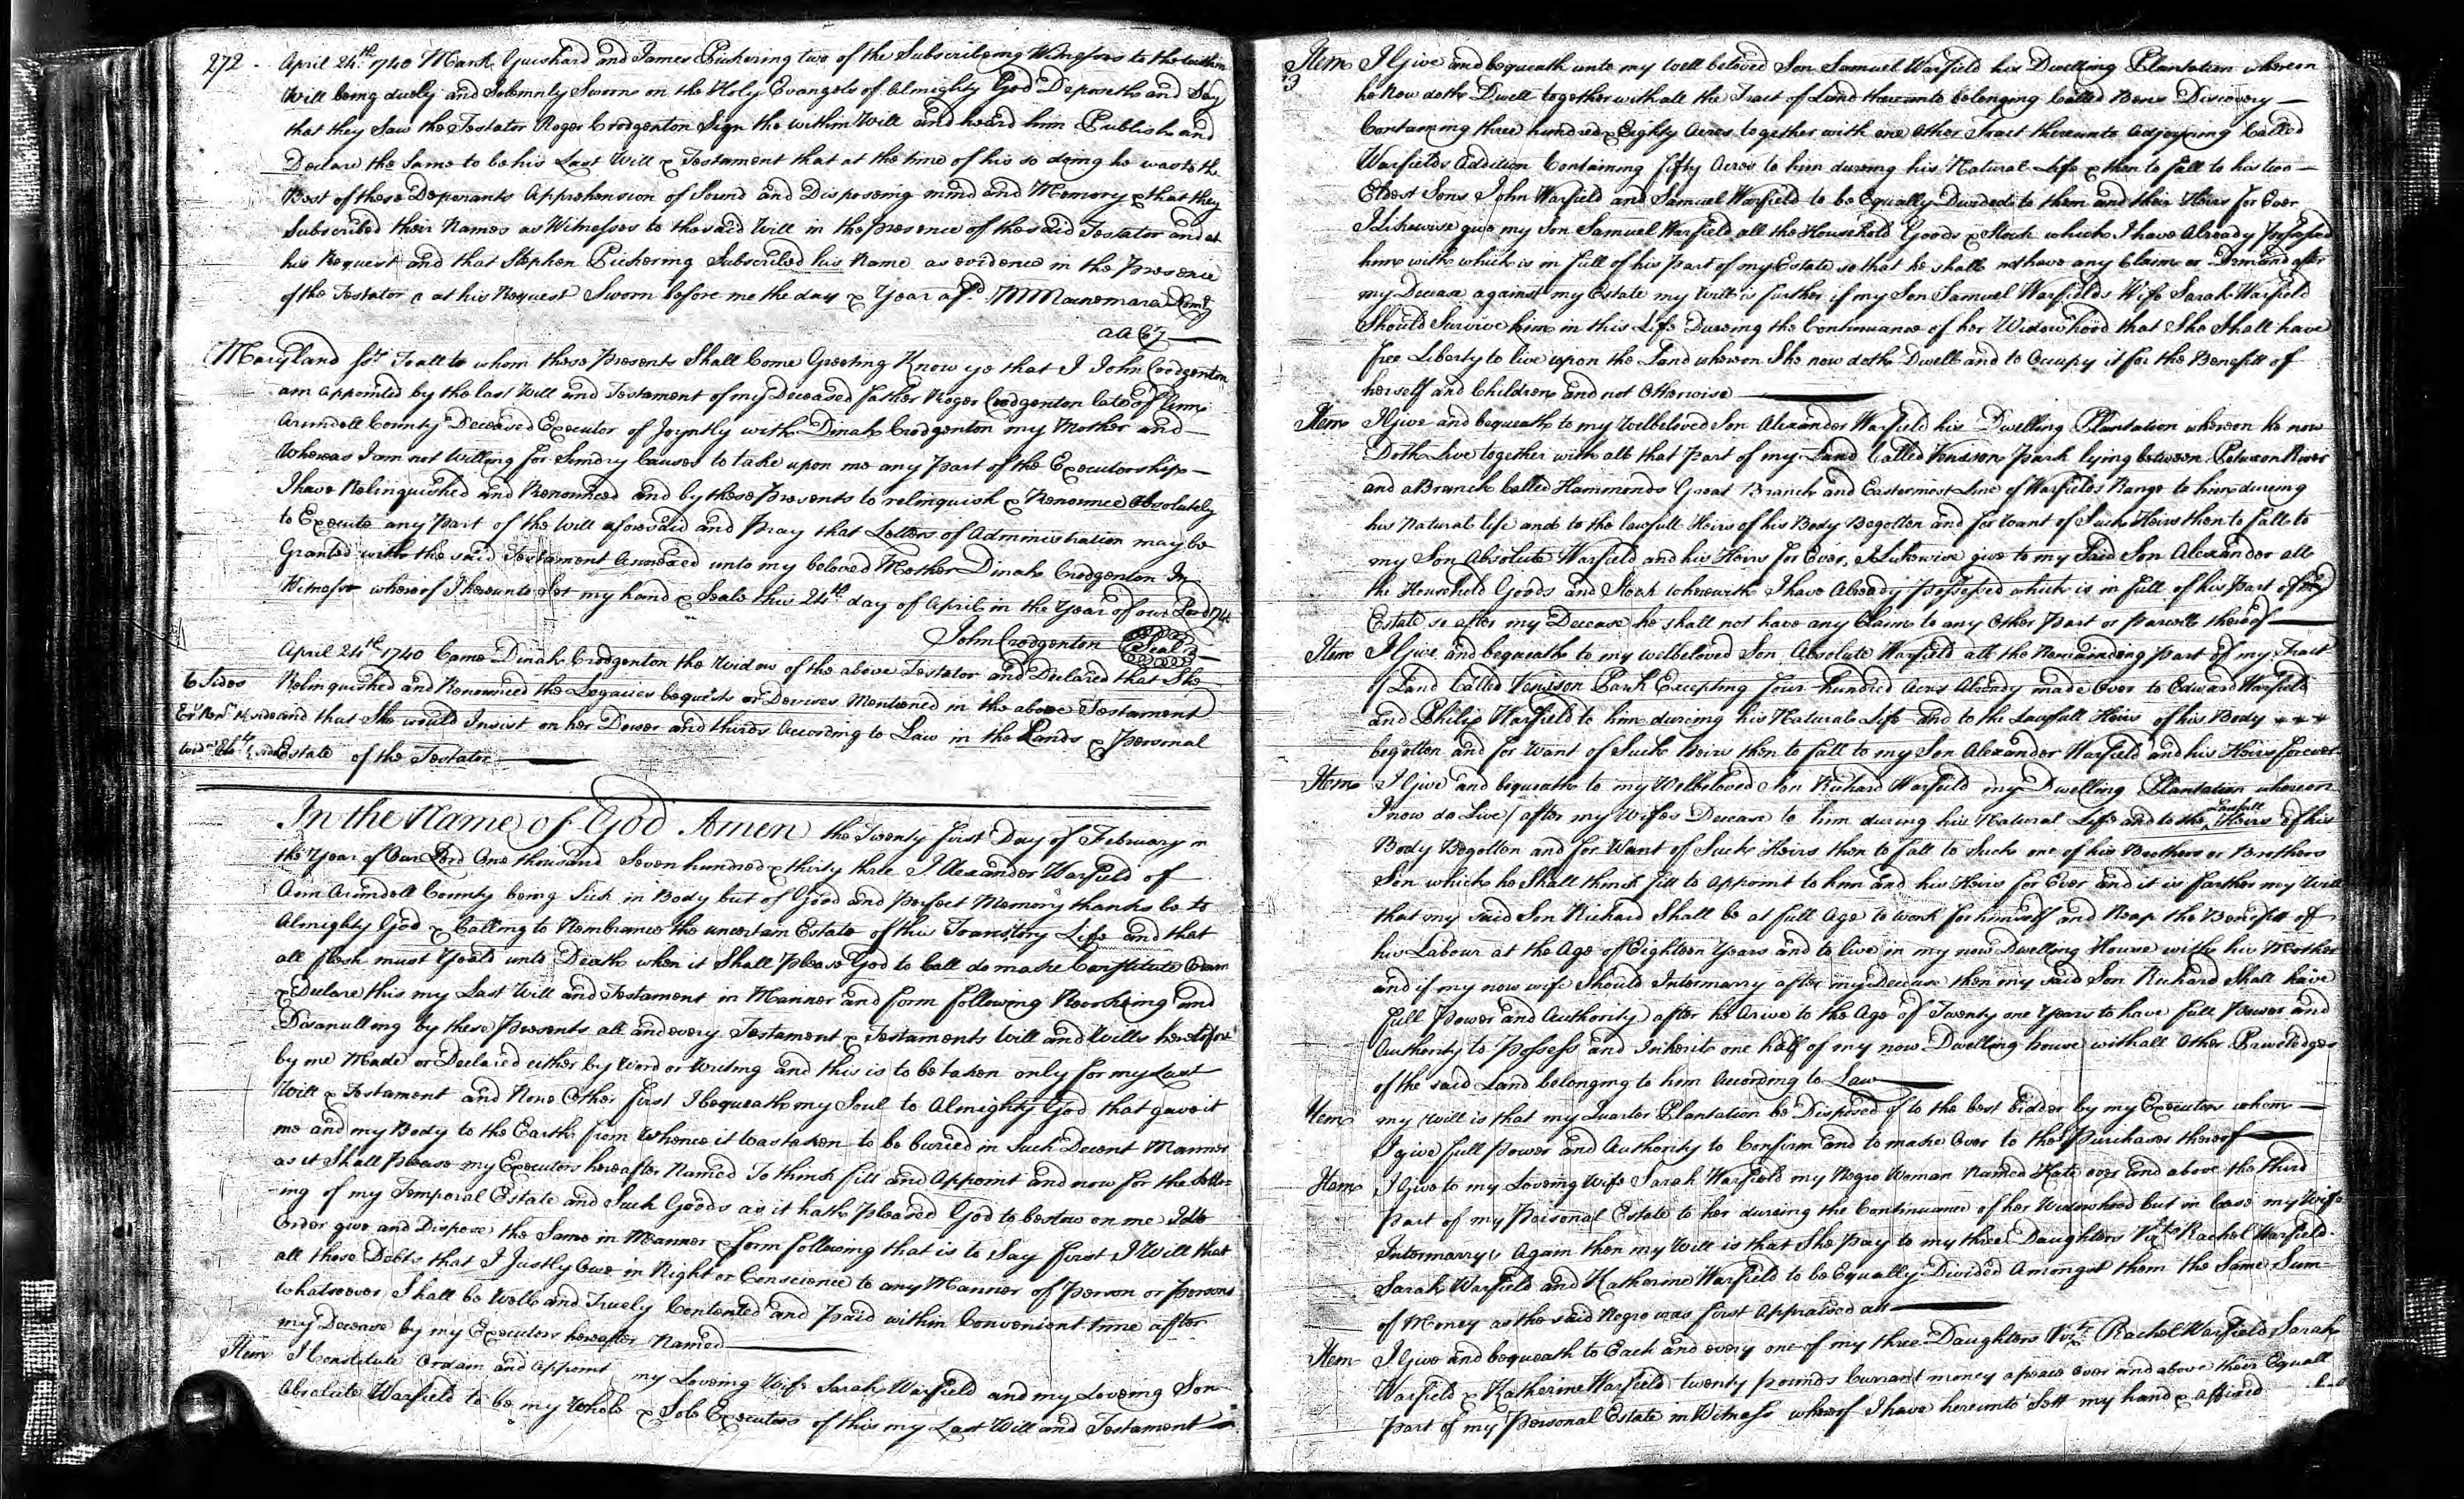 272 . April 24th 1740 Mark Guishard and James Pickering two of the Subscribeing Witnesses to the within
Will being duely and Solemnly Sworn on the Holy Evangels of Almighty God Deposeth and Say
that they Saw the Testator Roger Crodgenton Sign the within Will and heard him Publish and
Declare the Same to be his Last Will & Testament that at the time of his so doing he was to the
Best of these Deponants Apprehension of Sound and Disposeing mind and Memory & that they
Subscribed their Names as Witnesses to the said Will in the presence of the said Testator and at
his Request and that Stephen Pickering Subscribed his Name as evidence in the Presence
of the Testator & at his Request Sworn before me the day & Year afsd. M Macnemara
Maryland Sct. To all to whom these Presents Shall Come Greeting Know ye that I John Crodgenton
am appointed by the last Will and Testament of my Deceased father Roger Crodgenton late of Ann
Arundell County Deceased Executor of Joyntly with Dinah Crodgenton my Mother and
Whereas I am not Willing for Sundry Causes to take upon me any Part of the Executorship
I have Relinquished and Renounced and by these Presents to relinquish & Renounce Absolutely
to Execute any Part of the Will aforesaid and Pray that Letters of Administration may be
Granted with the said Testament Annexed unto my beloved Mother Dinah Crodgenton In
Witness whereof I hereunto Set my hand & Seale this 24th day of April in the Year of our Lord 174
John Crodgenton Seal
April 24th 1740 Came Dinah Crodgenton the Widow of the above Testator and Declared that She
6 Sides Relinquished and Renounced the Legacies bequests or Devises Mentioned in the above Testament
and that She would Insist on her Dower and thirds According to Law in the Lands & Personal
Estate of the Testator
In the Name of God Amen the Twenty first Day of February in
the Year of Our Lord One thousand Seven hundred & thirty three I Alexander Warfield of
Ann Arundell County being Sick in Body but of Good and Perfect Memory thanks be to
Almighty God & Calling to Rembrance the uncertain Estate of this Transitory Life and that
all flesh must Yeald unto Death when it Shall Please God to Call do make Constitute Ordain
& Declare this my Last Will and Testament in Manner and form following Revokeing and
Disanulling by these Presents all and every Testament & Testaments Will and Wills heretofore
by me Made or Declared either by Word or Writing and this is to be taken only for my Last
Will & Testament and None Other first I bequeath my Soul to Almighty God that gave it
me and my Body to the Earth from Whence it was taken to be buried in Such Decent Manner
as it Shall Please my Executors hereafter Named To think fitt and Appoint and now for the Settle=
=ing of my Temporal Estate and Such Goods as it hath Pleased God to bestow on me I do
Order give and Dispose the Same in Manner & form following that is to Say first I Will that
all those Debts that I Justly Owe in Right or Conscience to any Manner of Person or Persons
whatsoever Shall be Well and Truely Contented and Paid within Convenient time after
my Decease by my Executors hereafter Named
Item I Constitute Ordain and appoint my Loveing Wife Sarah Warfield and my Loveing Son
Absolute Warfield to be my Whole & Sole Executors of this my Last Will and Testament
Item I Give and bequeath unto my Well beloved Son Samuel Warfield his Dwelling Plantation whereon
he Now doth Dwell together with all the Tract of Land thereunto belonging Called Benns Discovery
Containing three hundred & Eighty Acres together with one Other Tract thereunto Adjoyning Called
Warfields Addition Containing fifty Acres to him dureing his Natural Life & then to fall to his two
Eldest Sons John Warfield and Samuel Warfield to be Equally Divided to them and their Heirs for Ever
I Likewise give my Son Samuel Warfield all the Household Goods & Stock which I have Already Possessed
him with which is in full of his Part of my Estate so that he shall not have any Claim or Demand after
my Decease against my Estate my Will is further if my Son Samuel Warfields Wife Sarah Warfield
Should Survive him in this Life Dureing the Continuance of her Widowhood that She Shall have
free Liberty to live upon the Land whereon She now doth Dwell and to Occupy it for the Benefitt of
herself and Children and not Otherwise
Item I give and bequeath to my Welbeloved Son Alexander Warfield his Dwelling Plantation whereon he now
Doth Live together with all that Part of my Land Called Venison Park lying between Petuxon River
and a Branch Called Hammonds Great Branch and Eastermost Line of Warfields Range to him dureing
his Natural life and to the lawfull Heirs of his Body Begotten and for Want of Such Heirs then to fall to
my Son Absolute Warfield and his Heirs for Ever, I Likewise give to my Said Son Alexander all
the Household Goods and Stock wherewith I have Already Possessed which is in full of his Part of my
Estate so after my Decease he shall not have any Claim to any Other Part or parcell thereof
Item I Give and bequeath to my welbeloved Son Absolute Warfield all the Remainding part of my Tract
of Land Called Venison Park Excepting four hundred Acres Already made Over to Edward Warfield
and Philip Warfield to him dureing his Natural Life and to the Lawfull Heirs of his Body
begotten and for Want of Such Heirs then to fall to my Son Alexander Warfield and his Heirs forever
Item I Give and bequeath to my Welbeloved Son Richard Warfield my Dwelling Plantation whereon
I now do Live (after my Wifes Decease to him during his Natural Life and to the Lawfull Heirs of his
Body Begotten and for Want of Such Heirs then to fall to Such one of his Brothers or Brothers
Son which he Shall think fitt to Appoint to him and his Heirs for Ever and it is farther my Will
that my said Son Richard Shall be at full Age to work for himself and Reap the Benefitt of
his Labour at the Age of Eighteen Years and to live in my now Dwelling House with his Mother
and if my now wife Should Intermarry after my Decease then my said Son Richard Shall have
full Power and Authority after he Arive to the Age of Twenty one Years to have full Power and
Authority to Possess and Inherit one half of my now Dwelling house with all Other Priviledges
of the said Land belonging to him According to Law
Item my Will is that my Quarter Plantation be Disposed of to the best bidder by my Executors whom
I give full Power and Authority to Confirm and to make Over to the Purchaser thereof
Item I Give to my Loveing Wife Sarah Warfield my Negro Woman Named Kate over and above the third
Part of my Personal Estate to her dureing the Continuance of her Widowhood but in Case my Wife
Intermarrys Again then my Will is that She Pay to my three Daughters Vizt. Rachel Warfield
Sarah Warfield and Katherine Warfield to be Equally Divided Amongst them the Same Sum
of Money as the said Negro was first Appraised att
Item I Give and bequeath to Each and every one of my three Daughters Vizt. Rachel Warfield Sarah
Warfield & Katherine Warfield twenty Pounds Currant money apeace over and above their Equall
Part of my Personal Estate in Witness whereof I have hereunto Sett my hand & affixed